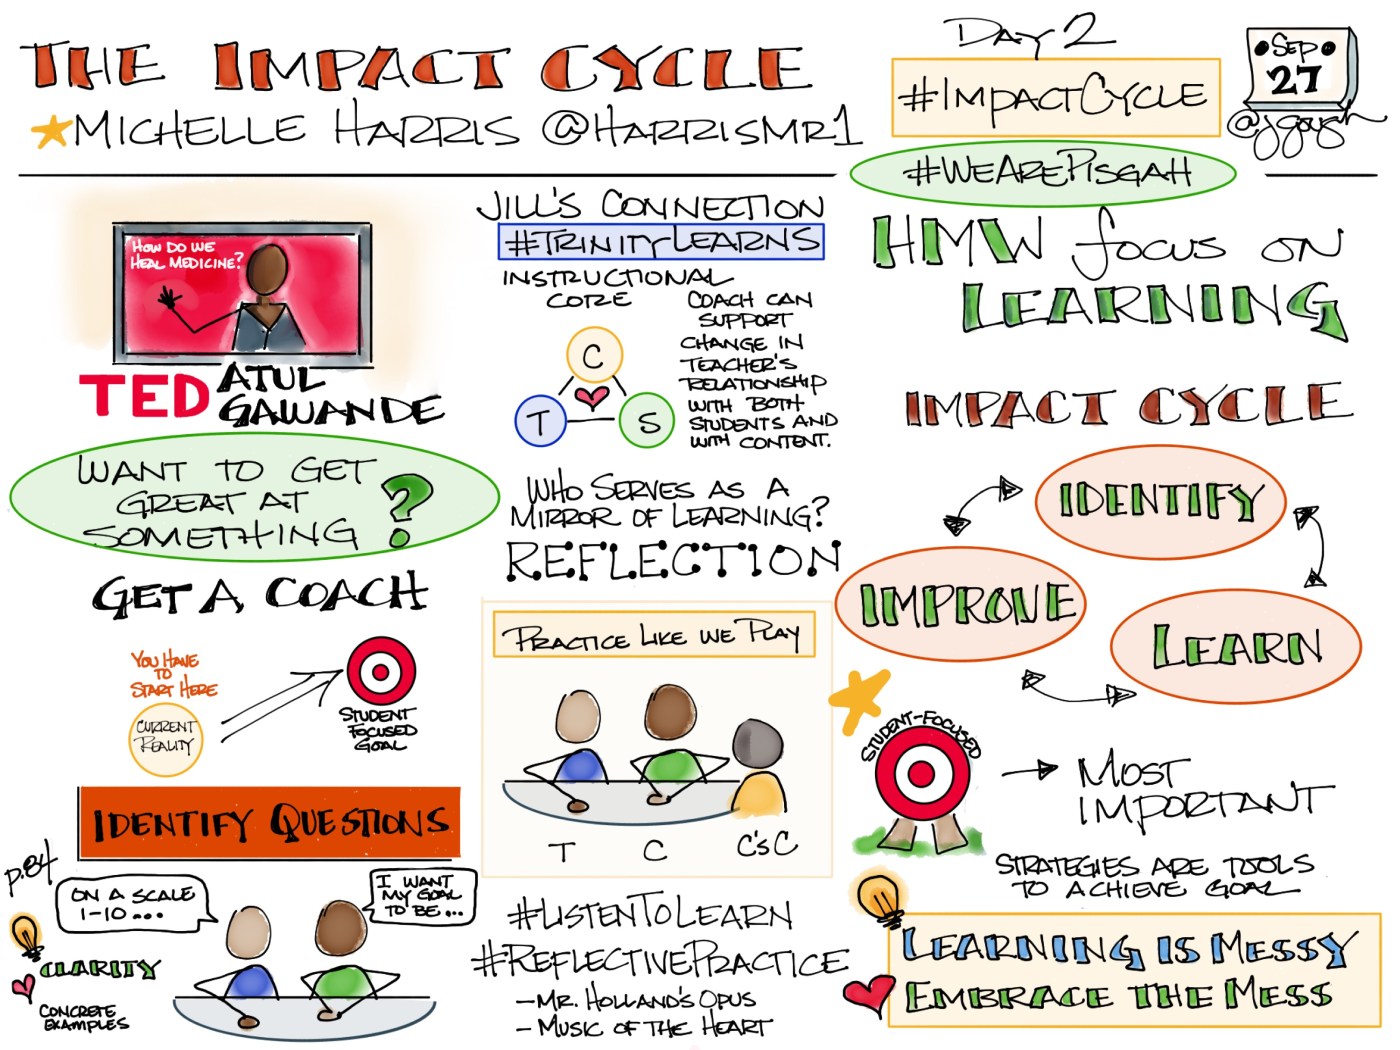 THE IMPACT CYCLE
MICHELLE HARRIS @HARRISMR1
DAY 2
#IMPACTCYCLE
SEP
27
@jgough
#WEAREPISGAH
HOW DO WE
HEAL MEDICINE?
TED ATUL
GAWANDE
WANT TO GET
GREAT AT
SOMETHING?
GET A COACH
YOU HAVE
TO
START HERE
CURRENT
REALITY
STUDENT
FOCUSED
GOAL
IDENTIFY QUESTIONS
p.84
ON A SCALE
1-10...
I WANT
MY GOAL
TO BE...
CLARITY
CONCRETE
EXAMPLES
JILL'S CONNECTION
#TRINITYLEARNS
INSTRUCTIONAL
CORE
C
T
S
COACH CAN
SUPPORT
CHANGE IN
TEACHER'S
RELATIONSHIP
WITH BOTH
STUDENTS AND
WITH CONTENT.
WHO SERVES AS A
MIRROR OF LEARNING?
REFLECTION
PRACTICE LIKE WE PLAY
T C C'S C
#LISTENTOLEARN
#REFLECTIVEPRACTICE
- MR. HOLLAND'S OPUS
- MUSIC OF THE HEART
HMW focus ON
LEARNING
IMPACT CYCLE
IDENTIFY
IMPROVE
LEARN
STUDENT-FOCUSED
MOST
IMPORTANT
STRATEGIES ARE TOOLS
TO ACHIEVE GOAL
LEARNING IS MESSY
EMBRACE THE MESS